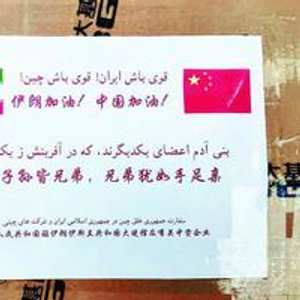 قوی باش ایران! قوی باش چین!
伊朗加油！中国加油！
بنی آدم اعضای یکدیگرند، که در آفرینش ز یک
子孙皆兄弟，兄弟犹如手足亲
سفارت جمهوری خلق چین در جمهوری اسلامی ایران و شرکت های چینی
人民共和国驻伊朗伊斯兰共和国大使馆及在伊中资企业